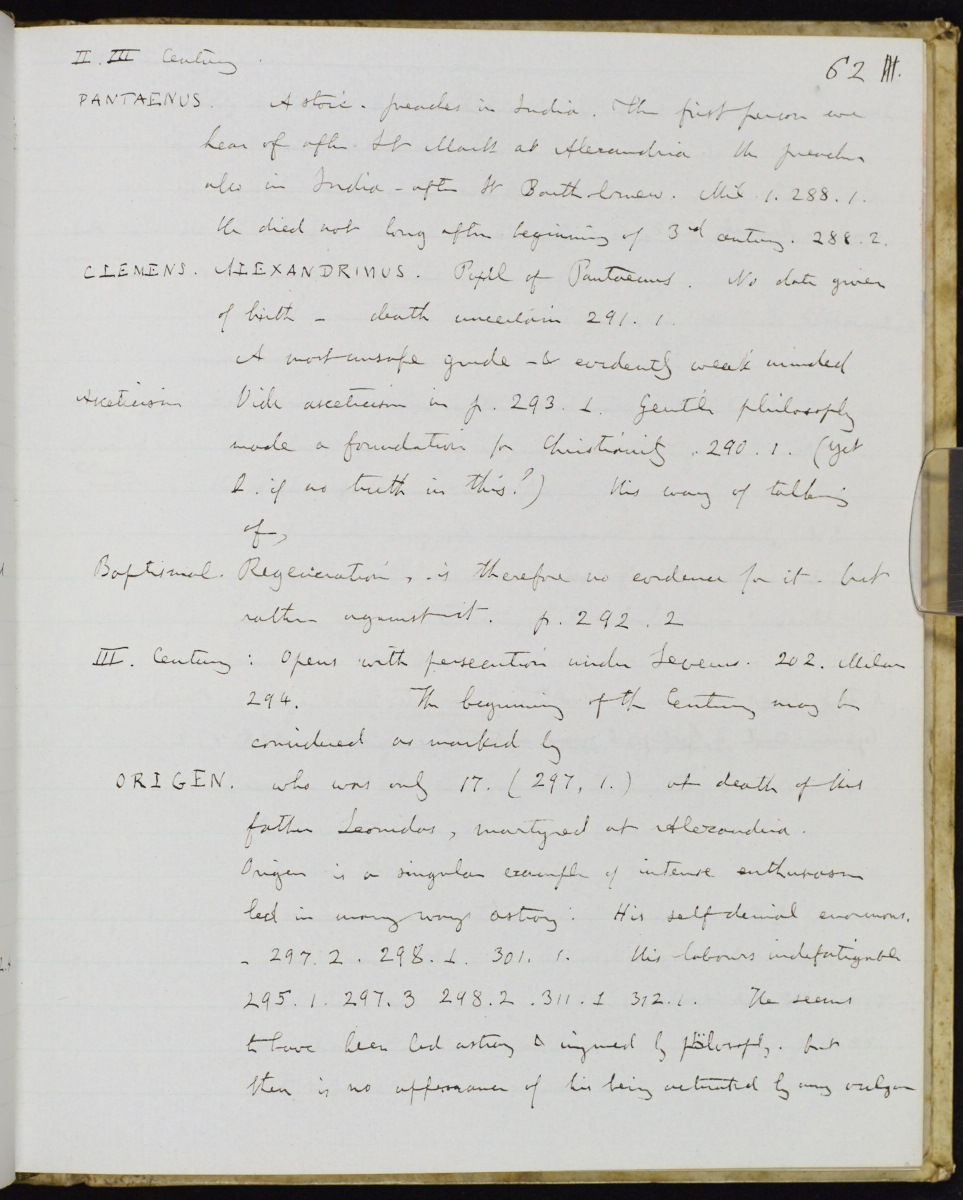 II. III Century.
62 III.
PANTAENUS. A stoic. preaches in India. The first person we
hear of after St Mark at Alexandria he preaches
also in India - after St Bartholomew. Mil. 1. 288. 1.
He died not long after beginning of 3rd century. 288. 2.
CLEMENS. ALEXANDRINUS. Pupil of Pantaenus. No date given
of birth - death uncertain 291. 1.
A most unsafe guide - & evidently weak minded
Asceticism Vide asceticism in p. 293. 1. Gentile philosophy
made a foundation for Christianity. 290. 1. (Yet
Q. if no truth in this?) His way of talking
of,
Baptismal. Regeneration, . is therefore no evidence for it. but
rather against it. p. 292. 2
III. Century: Opens with persecution under Severus. 202. Milner
294. The beginning of the Century may be
considered as marked by
ORIGEN. who was only 17. (297, 1.) at death of his
father Leonidas, martyred at Alexandria.
Origen is a singular example of intense enthusiasm
led in many ways astray. His self denial enormous.
- 297. 2. 298. 1. 301. 1. His labours indefatigable
295. 1. 297. 3 298. 2. 311. 1 312. 1. He seems
to have been led astray & injured by philosophy. but
there is no appearance of his being actuated by any vulgar